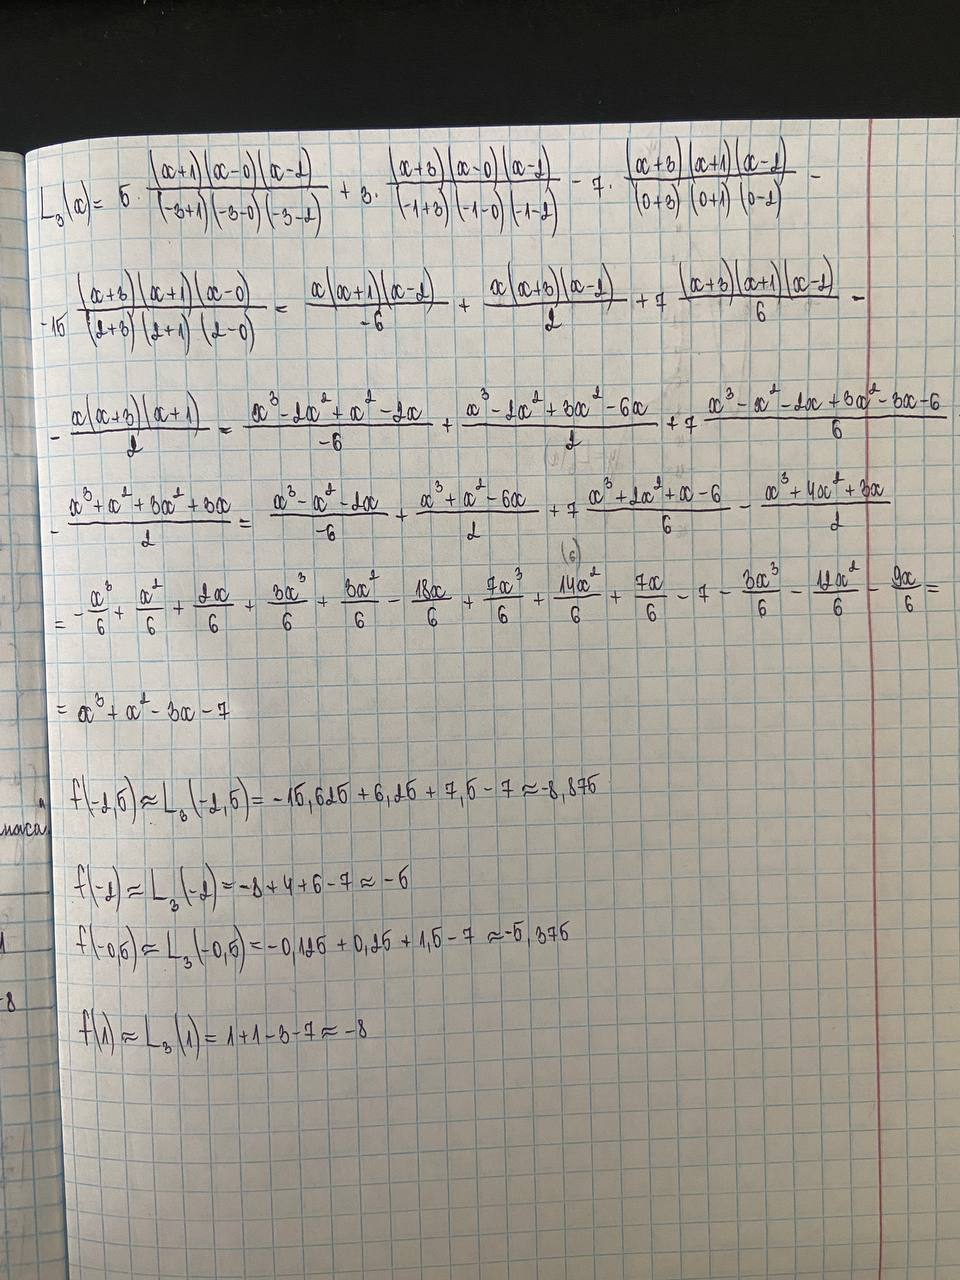 L₃(x) = 5 · (x+1)(x-0)(x-2)/(-3+1)(-3-0)(-3-2) + 3 · (x+3)(x-0)(x-2)/(-1+3)(-1-0)(-1-2) - 7 · (x+3)(x+1)(x-2)/(0+3)(0+1)(0-2) -
-15 (x+3)(x+1)(x-0)/(2+3)(2+1)(2-0) = x(x+1)(x-2)/-6 + x(x+3)(x-2)/2 + 7 (x+3)(x+1)(x-2)/6 -
- x(x+3)(x+1)/2 = x³-2x²+x²-2x/-6 + x³-2x²+3x²-6x/2 + 7 x³-x²-2x+3x²-3x-6/6
- x³+x²+3x²+3x/2 = x³-x²-2x/-6 + x³+x²-6x/2 + 7 x³+2x²+x-6/6 - x³+4x²+3x/2
(6)
= -x³/6 + x²/6 + 2x/6 + 3x³/6 + 3x²/6 - 18x/6 + 7x³/6 + 14x²/6 + 7x/6 - 7 - 3x³/6 - 12x²/6 - 9x/6 =
= x³ + x² - 3x - 7
f(-2,5) ≈ L₃(-2,5) = -15,625 + 6,25 + 7,5 - 7 ≈ -8,875
f(-2) ≈ L₃(-2) = -8 + 4 + 6 - 7 ≈ -5
f(-0,5) ≈ L₃(-0,5) = -0,125 + 0,25 + 1,5 - 7 ≈ -5,375
f(1) ≈ L₃(1) = 1 + 1 - 3 - 7 ≈ -8
-8